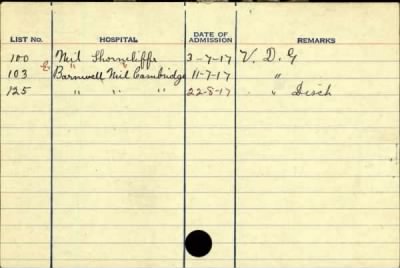 LIST No. HOSPITAL DATE OF ADMISSION REMARKS
100 Mil Shorncliffe 3-7-17 V. D. G
103 Barnwell Mil Cambridge 11-7-17 "
125 " " " 22-8-17 " Disch